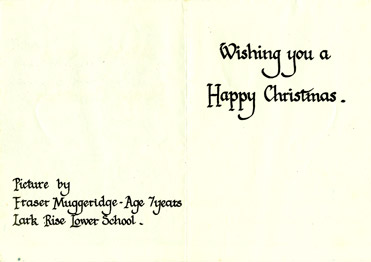 Wishing you a
Happy Christmas.
Picture by
Fraser Muggeridge - Age 7years
Lark Rise Lower School.